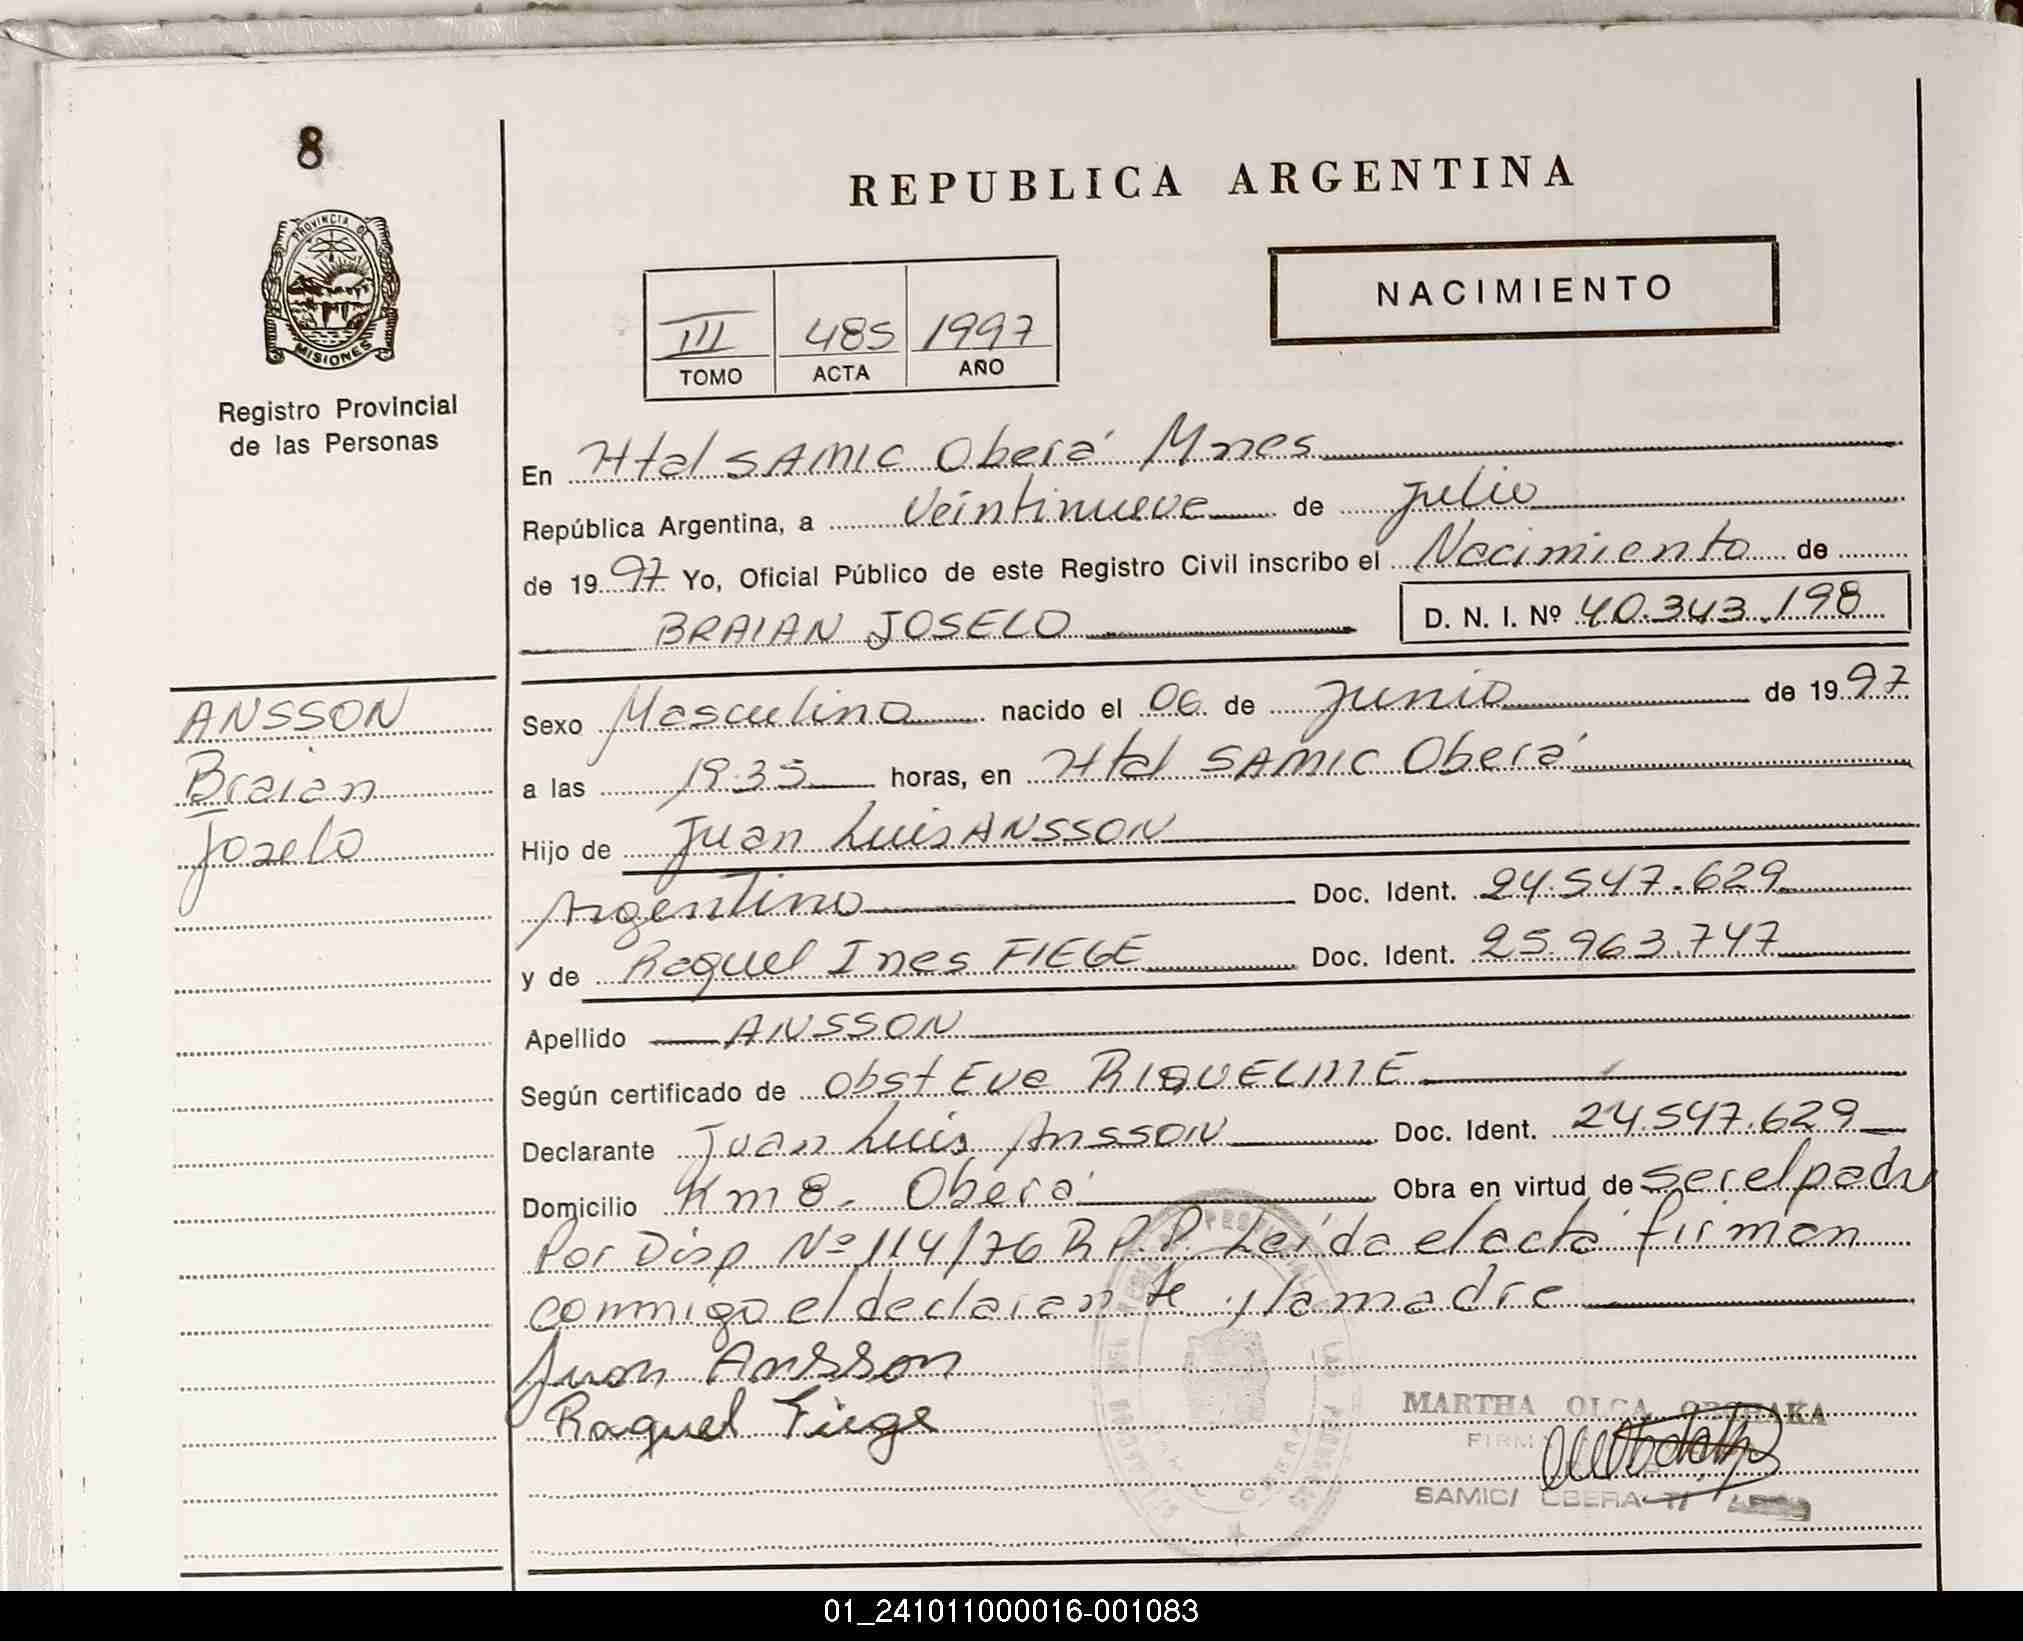 8
REPUBLICA ARGENTINA
PROVINCIA DE
MISIONES
NACIMIENTO
III 485 1997
TOMO ACTA AÑO
Registro Provincial
de las Personas
En Htal SAMIC Oberá Mnes
República Argentina, a Veintinueve de Julio
de 1997 Yo, Oficial Público de este Registro Civil inscribo el Nacimiento de
BRAIAN JOSELO D. N. I. Nº 40.343.198
ANSSON
Braian
Joselo
Sexo Masculino nacido el 06 de Junio de 1997
a las 19.35 horas, en Htal SAMIC Oberá
Hijo de Juan Luis ANSSON
Argentino Doc. Ident. 24.547.629
y de Raquel Ines FIEGE Doc. Ident. 25.963.747
Apellido ANSSON
Según certificado de Obst Eva RIQUELME
Declarante Juan Luis Ansson Doc. Ident. 24.547.629
Domicilio Km 8. Oberá Obra en virtud de ser el padre
Por Disp Nº 114/76 R.P.P. Leída el acta firman
conmigo el declarante y la madre
Juan Ansson
Raquel Fiege
MARTHA OLGA
SAMIC/ OBERA
01_241011000016-001083